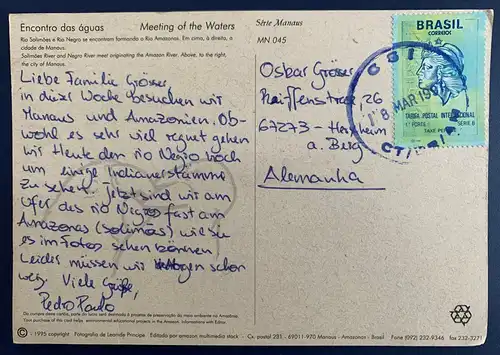 Encontro das águas
Meeting of the Waters
Rio Solimões e Rio Negro se encontram formando o Rio Amazonas. Em cima, à direita, a
cidade de Manaus.
Solimões River and Negro River meet originating the Amazon River. Above, to the right,
the city of Manaus.
Série Manaus
MN 045
BRASIL
CORREIOS
TARIFA POSTAL INTERNACIONAL
1º PORTE
SÉRIE B
TAXE PERÇUE
18 MAR 199
Liebe Familie Gröser
in dieser Woche besuchen wir
Manaus und Amazonien. Ob-
wohl es sehr viel regnet gehen
wir Heute den rio Negro hoch
um einige Indianerstämme
zu sehen. Jetzt sind wir am
Ufer des rio Negro fast am
Amazonas (Solimões) wie sie
es im Fotos sehen können
Leider müssen wir Morgen schon
weg. Viele Grüße,
Pedro Paulo
Oskar Gröser
26
67273 - Herxheim
a. Berg
Alemanha
Da compra deste cartão, parte do lucro será destinado a projetos de preservação do meio ambiente no Amazonas.
© - 1995 copyright
Fotografia de Leonide Principe
Editado por amazon multimedia stock
Cx. postal 251 - 69011 970 Manaus - Amazonas - Brasil
Fone (092) 232-9346
fax 232-3271